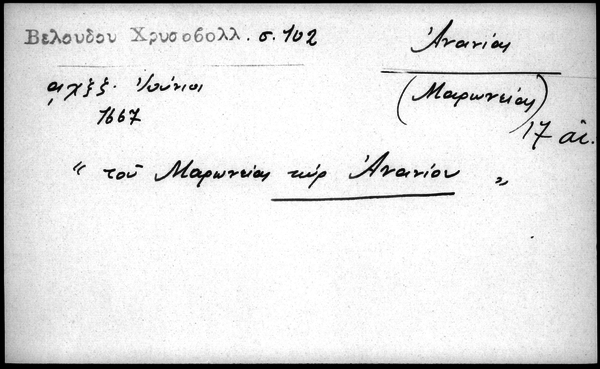 Βελουδου Χρυσοβολλ. σ. 102
Ἀνανίας
(Μαρωνείας)
17 αἰ.
Ἰούνιοι
1667
“ τοῦ Μαρωνείας κύρ Ἀνανίου „